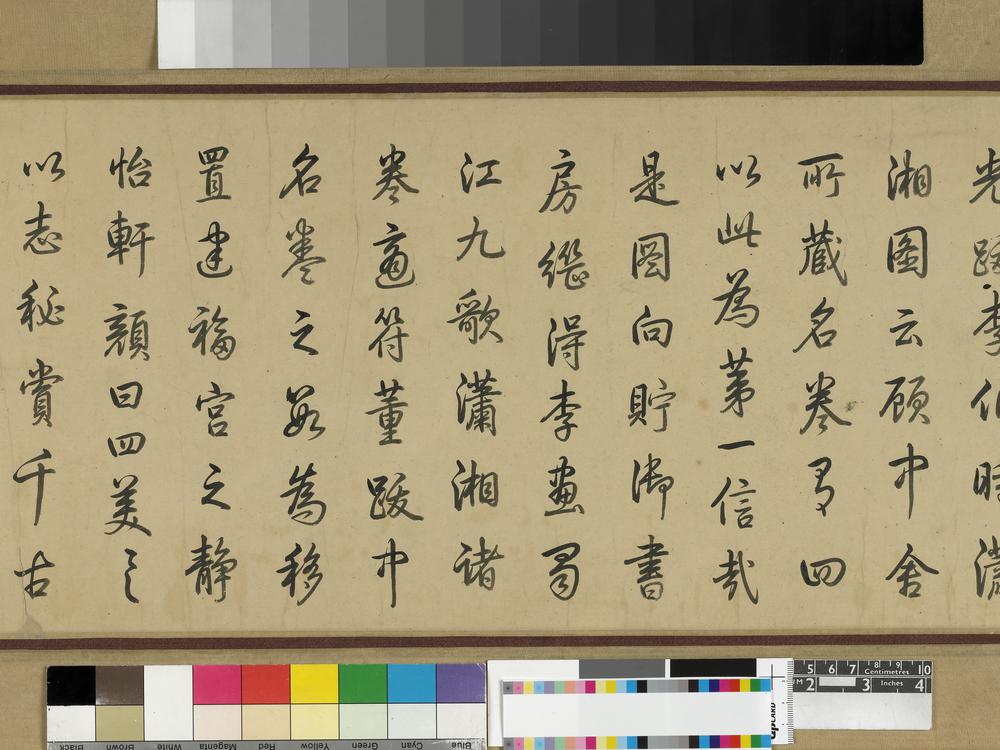 光跋李伯時瀟
湘圖云顧中舍
所藏名卷有四
以此為第一信哉
是圖向貯御書
房繼得李畫蜀
江九歌瀟湘諸
卷適符董跋中
名卷之數為移
置建福宮之靜
怡軒顏曰四美具
以志秘賞千古
Blue Cyan Green Yellow Red Magenta White Brown Black
5 6 7 8 9 10
Centimetres
2 3 Inches 4